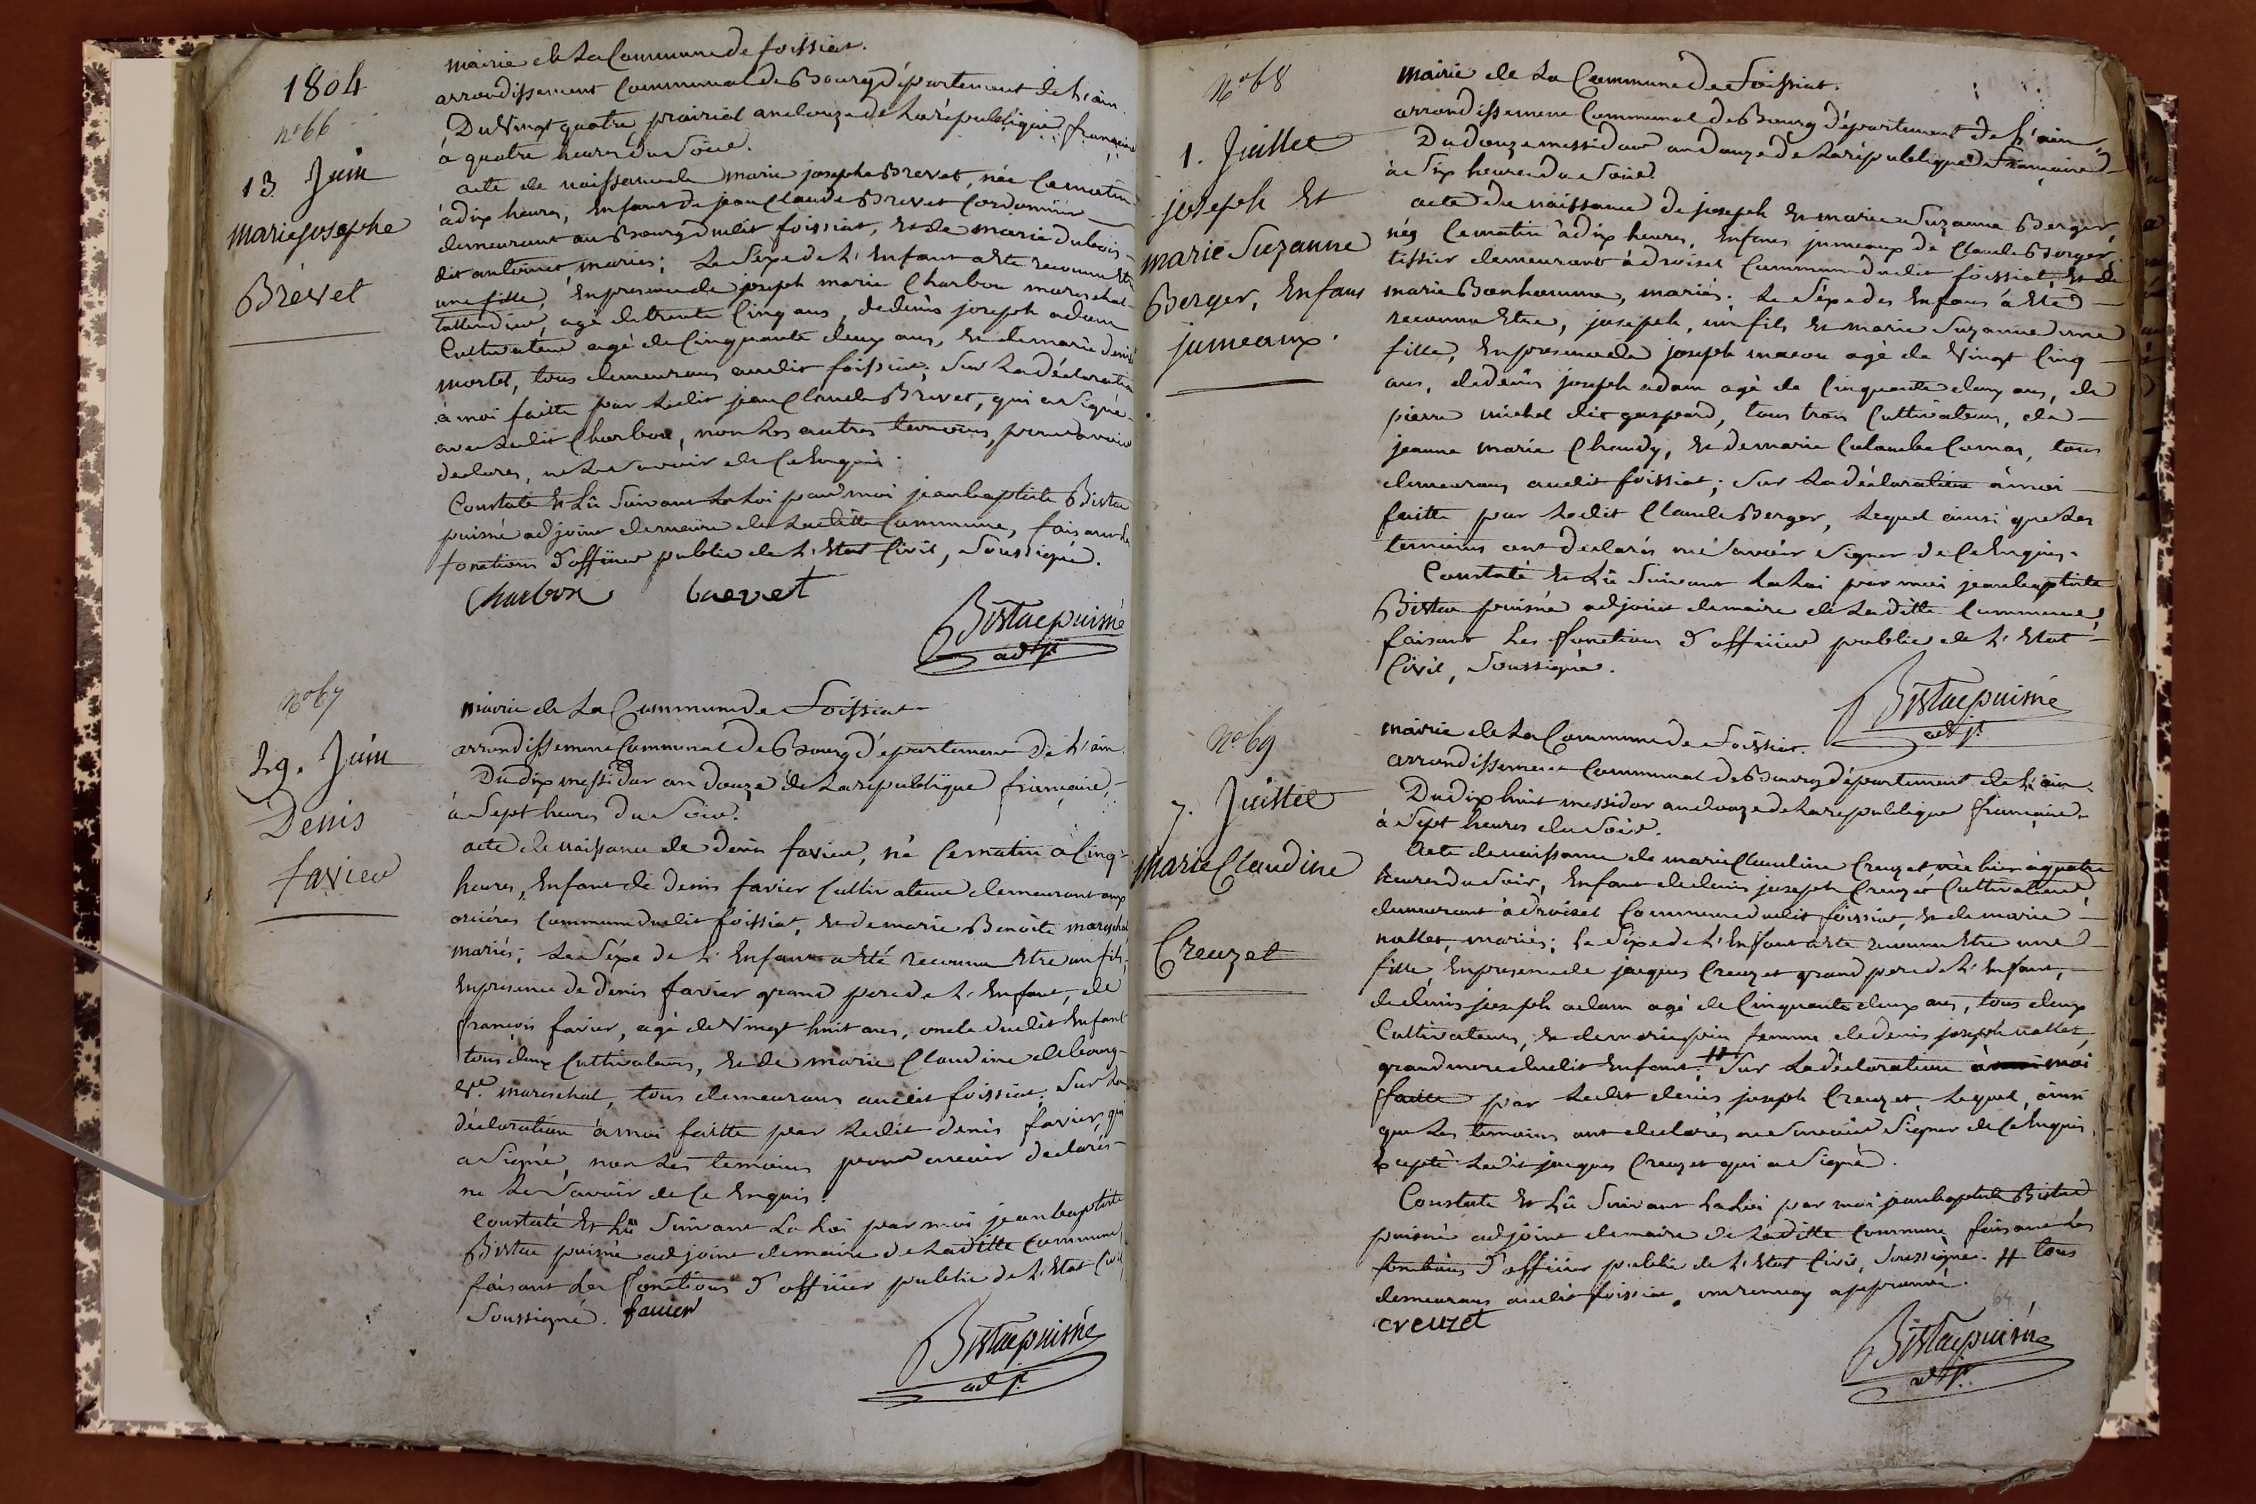 1804
nº 66
13 Juin
Marie josephe
Brevet
mairie de La Commune de foissiat.
arrondissement Communal de Bourg département de L'ain
Du Vingt quatre prairial an douze de La république française
à quatre heures du Soir.
acte de naissance de marie josephe Brevet, née Ce matin
à dix heures, Enfant de jean Claude Brevet Cordonnier
demeurant au Bourg dudit foissiat, Et de marie dubois
dit antoinet, mariés; Le Sexe de L'Enfant a Eté reconnu Etre
une fille, En presence de joseph marie Charbon mareschal
tallendier, agé de trente Cinq ans, de denis joseph adam
Cultivateur agé de Cinquante deux ans, Et de marie denise
mortel, tous demeurans audit foissiat; Sur La déclaration
à moi faitte par Ledit jean Claude Brevet, qui a Signé
avec Ledit Charbon, non Les autres temoins, pour avoir
declarés, ne Le Savoir de Ce Enquis.
Constaté Et Lû Suivant La Loi par moi jean baptiste Bistac
puisné adjoint de maire de Laditte Commune, faisant les
fonctions d'officier public de L'Etat Civil, Soussigné.
Charbon brevet
Bistac puisné
adjt
Nº 67
29. Juin
Denis
favier
mairie de La Commune de Foissiat
arrondissement Communal de Bourg département de L'ain.
Du dix messidor an douze de La république française,
à Sept heures du Soir.
acte de naissance de denis favier, né Ce matin à Cinq
heures, Enfant de denis favier Cultivateur demeurant aux
orières Commune dudit foissiat, Et de marie Benoite mareschal
mariés; Le Séxe de L'Enfant a Eté reconnu Etre un fils,
En presence de denis favier grand pere de L'Enfant, de
françois favier, agé de Vingt huit ans, oncle dudit Enfant
tous deux Cultivateurs, Et de marie Claudine debourg
Ve. mareschal, tous demeurans audit foissiat; Sur La
déclaration à moi faitte par Ledit denis favier, qui
a Signé, non Les temoins pour avoir declarés
ne Le Savoir de Ce Enquis.
Constaté Et Lû Suivant La Loi par moi jean baptiste
Bistac puisné adjoint de maire de Laditte Commune,
faisant Les fonctions d'officier public de L'Etat Civil
Soussigné. favier
Bistac puisné
adjt
Nº 68
1. Juillet
joseph Et
marie Suzanne
Berger, Enfans
jumeaux.
mairie de La Commune de Foissiat.
arrondissement Communal de Bourg département de L'ain
Du douze messidor an douze de La république française
à Six heures du Soir.
acte de naissance de joseph Et marie Suzanne Berger,
nés Ce matin à dix heures, Enfans jumeaux de Claude Berger
tissier demeurant à droiset Commune dudit foissiat, Et de
marie Bonhomme, mariés; Le Séxe des Enfans a Eté
reconnu Etre, joseph, un fils Et marie Suzanne une
fille, En presence de joseph macon agé de Vingt Cinq
ans, de denis joseph adam agé de Cinquante deux ans, de
pierre michel dit gaspard, tous trois Cultivateurs, de
jeanne marie Chaudy, Et de marie Colombe Comas, tous
demeurans audit foissiat; Sur La déclaration à moi
faitte par Ledit Claude Berger, Lequel ainsi que Les
temoins ont declarés ne Savoir Signer de Ce Enquis.
Constaté Et Lû Suivant La Loi par moi jean baptiste
Bistac puisné adjoint de maire de Laditte Commune,
faisant Les fonctions d'officier public de L'Etat
Civil, Soussigné.
Bistac puisné
adjt
Nº 69
7. Juillet
Marie Claudine
Creuzet
mairie de La Commune de Foissiat.
arrondissement Communal de Bourg département de L'ain.
Du dix huit messidor an douze de La republique française
à Sept heures du Soir.
Acte de naissance de marie Claudine Creuzet, née hier à quatre
heures du Soir, Enfant de denis joseph Creuzet Cultivateur
demeurant à droiset Commune dudit foissiat, Et de marie
nallet, mariés; Le Séxe de L'Enfant a Eté reconnu Etre une
fille, En presence de jacques Creuzet grand pere de L'Enfant,
de denis joseph adam agé de Cinquante deux ans, tous deux
Cultivateurs, Et de marie pin femme de denis joseph nallet,
grand mere dudit Enfant. # Sur La déclaration à moi
faitte par Ledit denis joseph Creuzet, Lequel, ainsi
que Les temoins ont declarés ne Savoir Signer de Ce Enquis,
Excepté Ledit jacques Creuzet qui a Signé.
Constaté Et Lû Suivant La Loi par moi jean baptiste Bistac
puisné adjoint de maire de Laditte Commune faisant Les
fonctions d'officier public de L'Etat Civil, Soussigné. # tous
demeurans audit foissiat, un renvoy approuvé.
creuzet
Bistac puisné
adjt